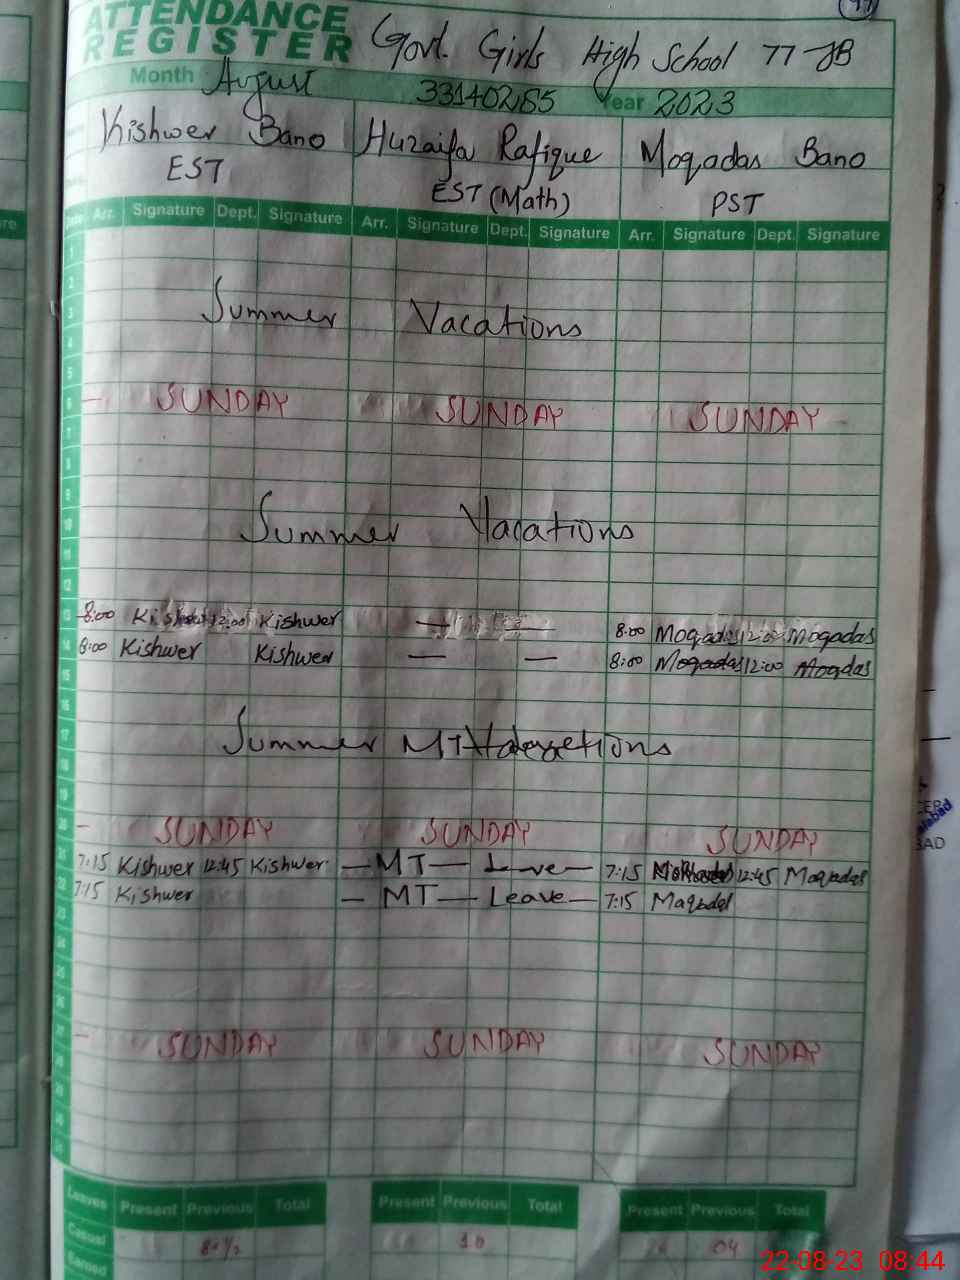 ATTENDANCE
REGISTER
Govt. Girls High School 77-JB
Month August 33140285 Year 2023
Kishwer Bano Huzaifa Rafique Moqadas Bano
EST EST (Math) PST
Arr. Signature Dept. Signature Arr. Signature Dept. Signature Arr. Signature Dept. Signature
1
2
3 Summer Vacations
4
5
6 SUNDAY SUNDAY SUNDAY
7
8
9
10 Summer Vacations
11
12
13 8:00 Kishwer 12:00 Kishwer — — 8:00 Moqadas 12:00 Moqadas
14 8:00 Kishwer Kishwer — — 8:00 Moqadas 12:00 Moqadas
15
16
17 Summer
18
19
20 — SUNDAY SUNDAY SUNDAY
21 7:15 Kishwer 12:45 Kishwer — MT — Leave — 7:15 12:45 Moqadas
22 7:15 Kishwer — MT — Leave — 7:15 Moqadas
23
24
25
26
27 — SUNDAY SUNDAY SUNDAY
28
29
30
31
Leaves Present Previous Total Present Previous Total Present Previous Total
Casual 10 04
Earned
22-08-23 08:44